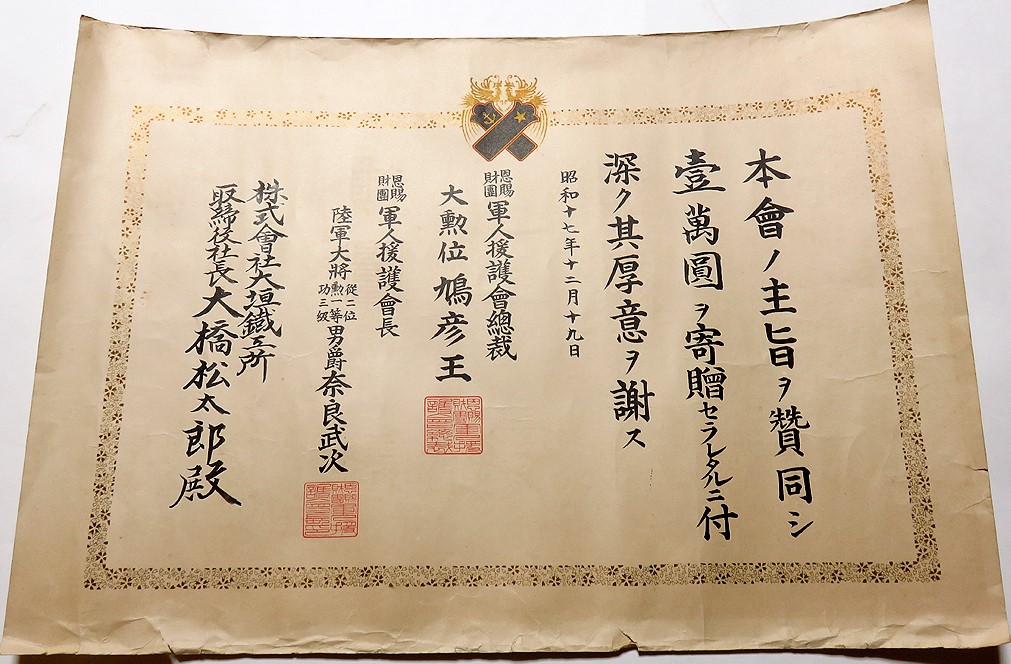 本會ノ主旨ヲ贊同シ
壹萬圓ヲ寄贈セラレタルニ付
深ク其厚意ヲ謝ス
昭和十七年十二月十九日
恩賜財團軍人援護會總裁
大勲位鳩彦王
恩賜財團軍人援護會長
陸軍大將從二位勲一等功三級男爵奈良武次
株式會社大垣鐵工所
取締役社長大橋松太郎殿